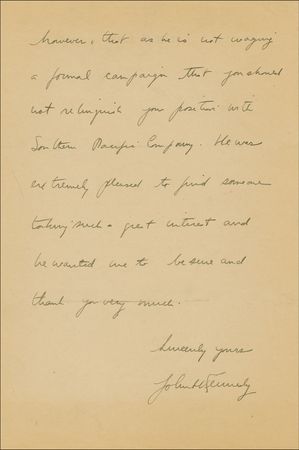 however, that as he is not waging
a formal campaign that you should
not relinquish your position with
Southern Pacific Company. He was
extremely pleased to find someone
taking such a great interest and
he wanted me to be sure and
thank you very much.
Sincerely yours
John Kennedy